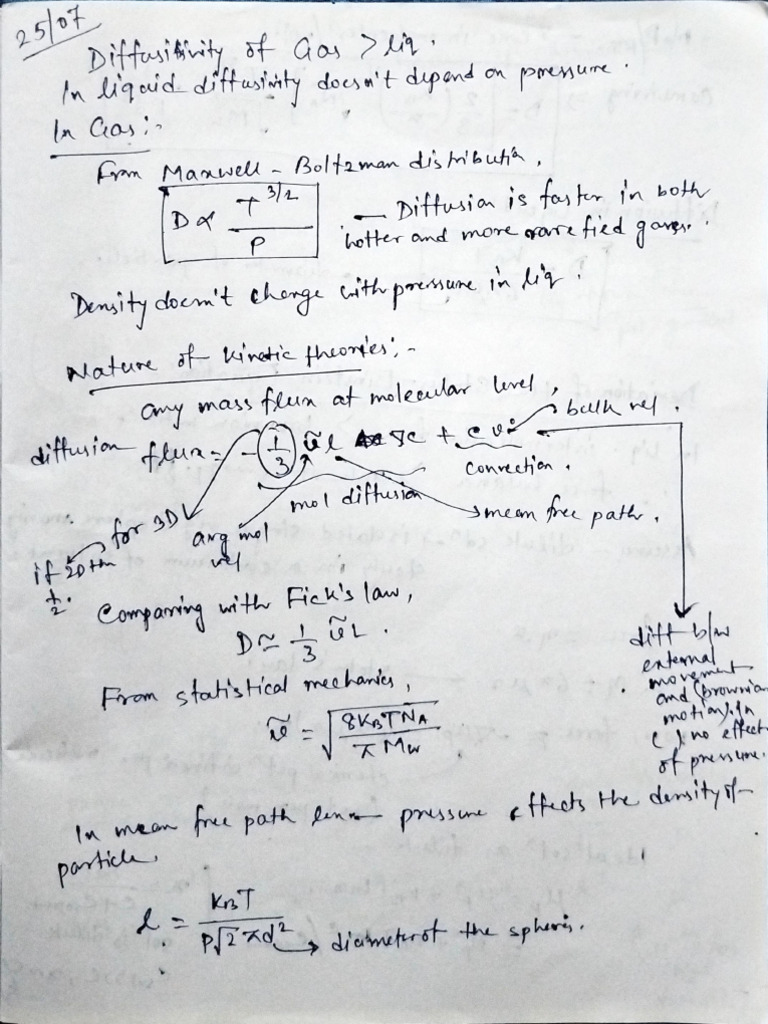 25/07
Diffusitivity of Gas > liq.
In liquid diffusivity doesn't depend on pressure.
In Gas:-
From Maxwell - Boltzman distributin,
D ∝ T^3/2 / P — Diffusion is faster in both
hotter and more rarefied gases.
Density doesn't change with pressure in liq.
Nature of kinetic theories:-
any mass flux at molecular level,
bulk vel.
diffusion flux = - 1/3 ṽ l ∇c + c v
convection.
mol diffusion
mean free path.
for 3D
avg mol
vel
if 2D then
1/2.
Comparing with Fick's law,
D ≃ 1/3 ṽ L.
diff b/w
external
movement
and (brownian
motion). In
( ) no effect
of pressure.
From statistical mechanics,
ṽ = √(8 K_B T N_A / π M_w)
In mean free path pressure effects the density of
particle.
l = K_B T / P √2 π d² → diameter of the spheres.